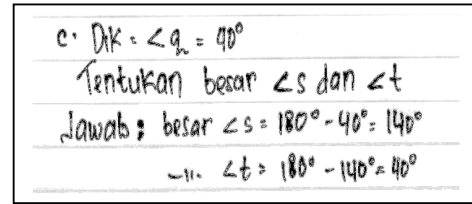 c. Dik : ∠q = 40°
Tentukan besar ∠s dan ∠t
Jawab : besar ∠s = 180° - 40° = 140°
-11- ∠t = 180° - 140° = 40°